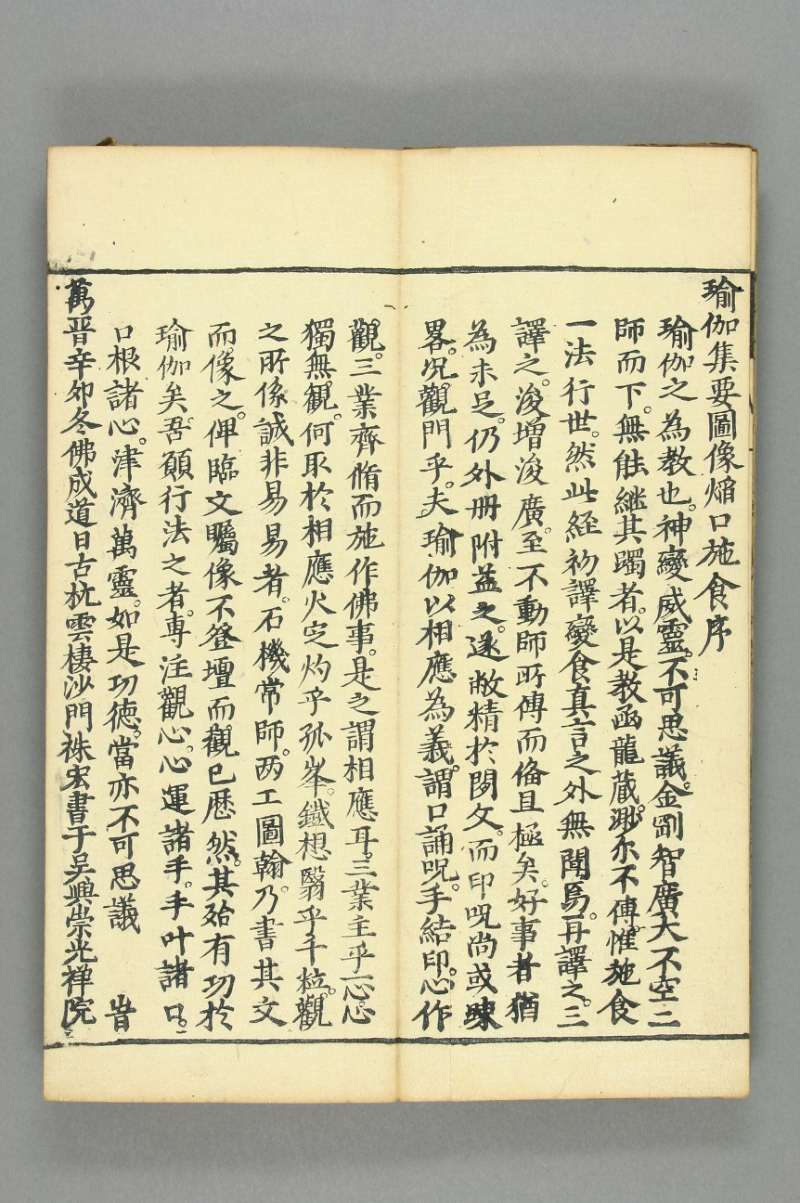 瑜伽集要圖像焰口施食序
瑜伽之為教也。神變威靈。不可思議。金剛智廣大不空二
師而下。無能繼其躅者。以是教函龍藏。渺尔不傳。惟施食
一法行世。然此経初譯變食真言之外無聞焉。再譯之。三
譯之。浚增浚廣。至不動師所傳而俻且極矣。好事者猶
為未足。仍外册附益之。遂敝精於閱文。而印呪尚或疎
畧。况觀門乎。夫瑜伽以相應為義。謂口誦呪。手結印。心作
觀。三業齊脩而施作佛事。是之謂相應耳。三業主乎一心。心
獨無觀。何取於相應。火定灼乎孤峯。鐵想翳乎千粒。觀
之所係誠非易易者。石機常師。両工圖翰。乃書其文
而像之。俾臨文矚像不登壇而觀已歷然。其殆有功於
瑜伽矣。吾願行法之者。専注觀心。心運諸手。手叶諸口。
口根諸心。津濟萬靈。如是功德。當亦不可思議 旹
萬曆辛卯冬佛成道日古杭雲棲沙門袾宏書于吳興崇光禪院